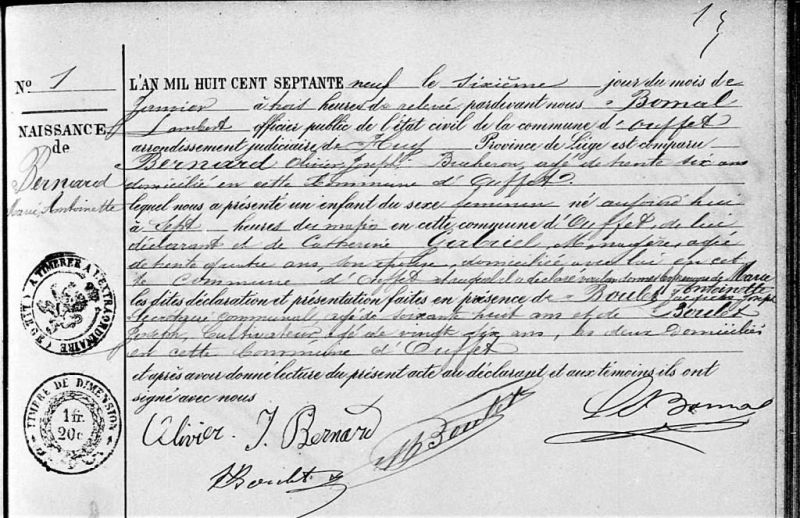 1
No 1
NAISSANCE
de
Bernard
Marie Antoinette
L'AN MIL HUIT CENT SEPTANTE neuf le sixième jour du mois de
Janvier à trois heures de relevée pardevant nous Bomal
Lambert officier public de l'état civil de la commune d'Ouffet
arrondissement judiciaire de Huy Province de Liége est comparu
Bernard Olivier Joseph, agé de trente six ans
domicilié en cette Commune d'Ouffet.
lequel nous a présenté un enfant du sexe feminin né aujourd'hui
à sept heures du matin en cette commune d'Ouffet, de lui
déclarant et de Catherine Gabriel, Ménagère, agée
de trente quatre ans, son épouse, domiciliée avec lui en cet
te Commune d'Ouffet et auquel il a déclaré vouloir donner les prénoms de Marie
Antoinette
les dites déclaration et présentation faites en présence de Boulet Jacques Joseph
communal, agé de soixante huit ans et de Boulet
Joseph, Cultivateur, agé de vingt six ans, les deux domiciliés
en cette Commune d'Ouffet
et après avoir donné lecture du présent acte au déclarant et aux témoins ils ont
signé avec nous
Olivier. J. Bernard
Boulet
Boulet
Bomal
A TIMBRER A L'EXTRAORDINAIRE (HUY)
TIMBRE DE DIMENSION
1 fr.
20 c